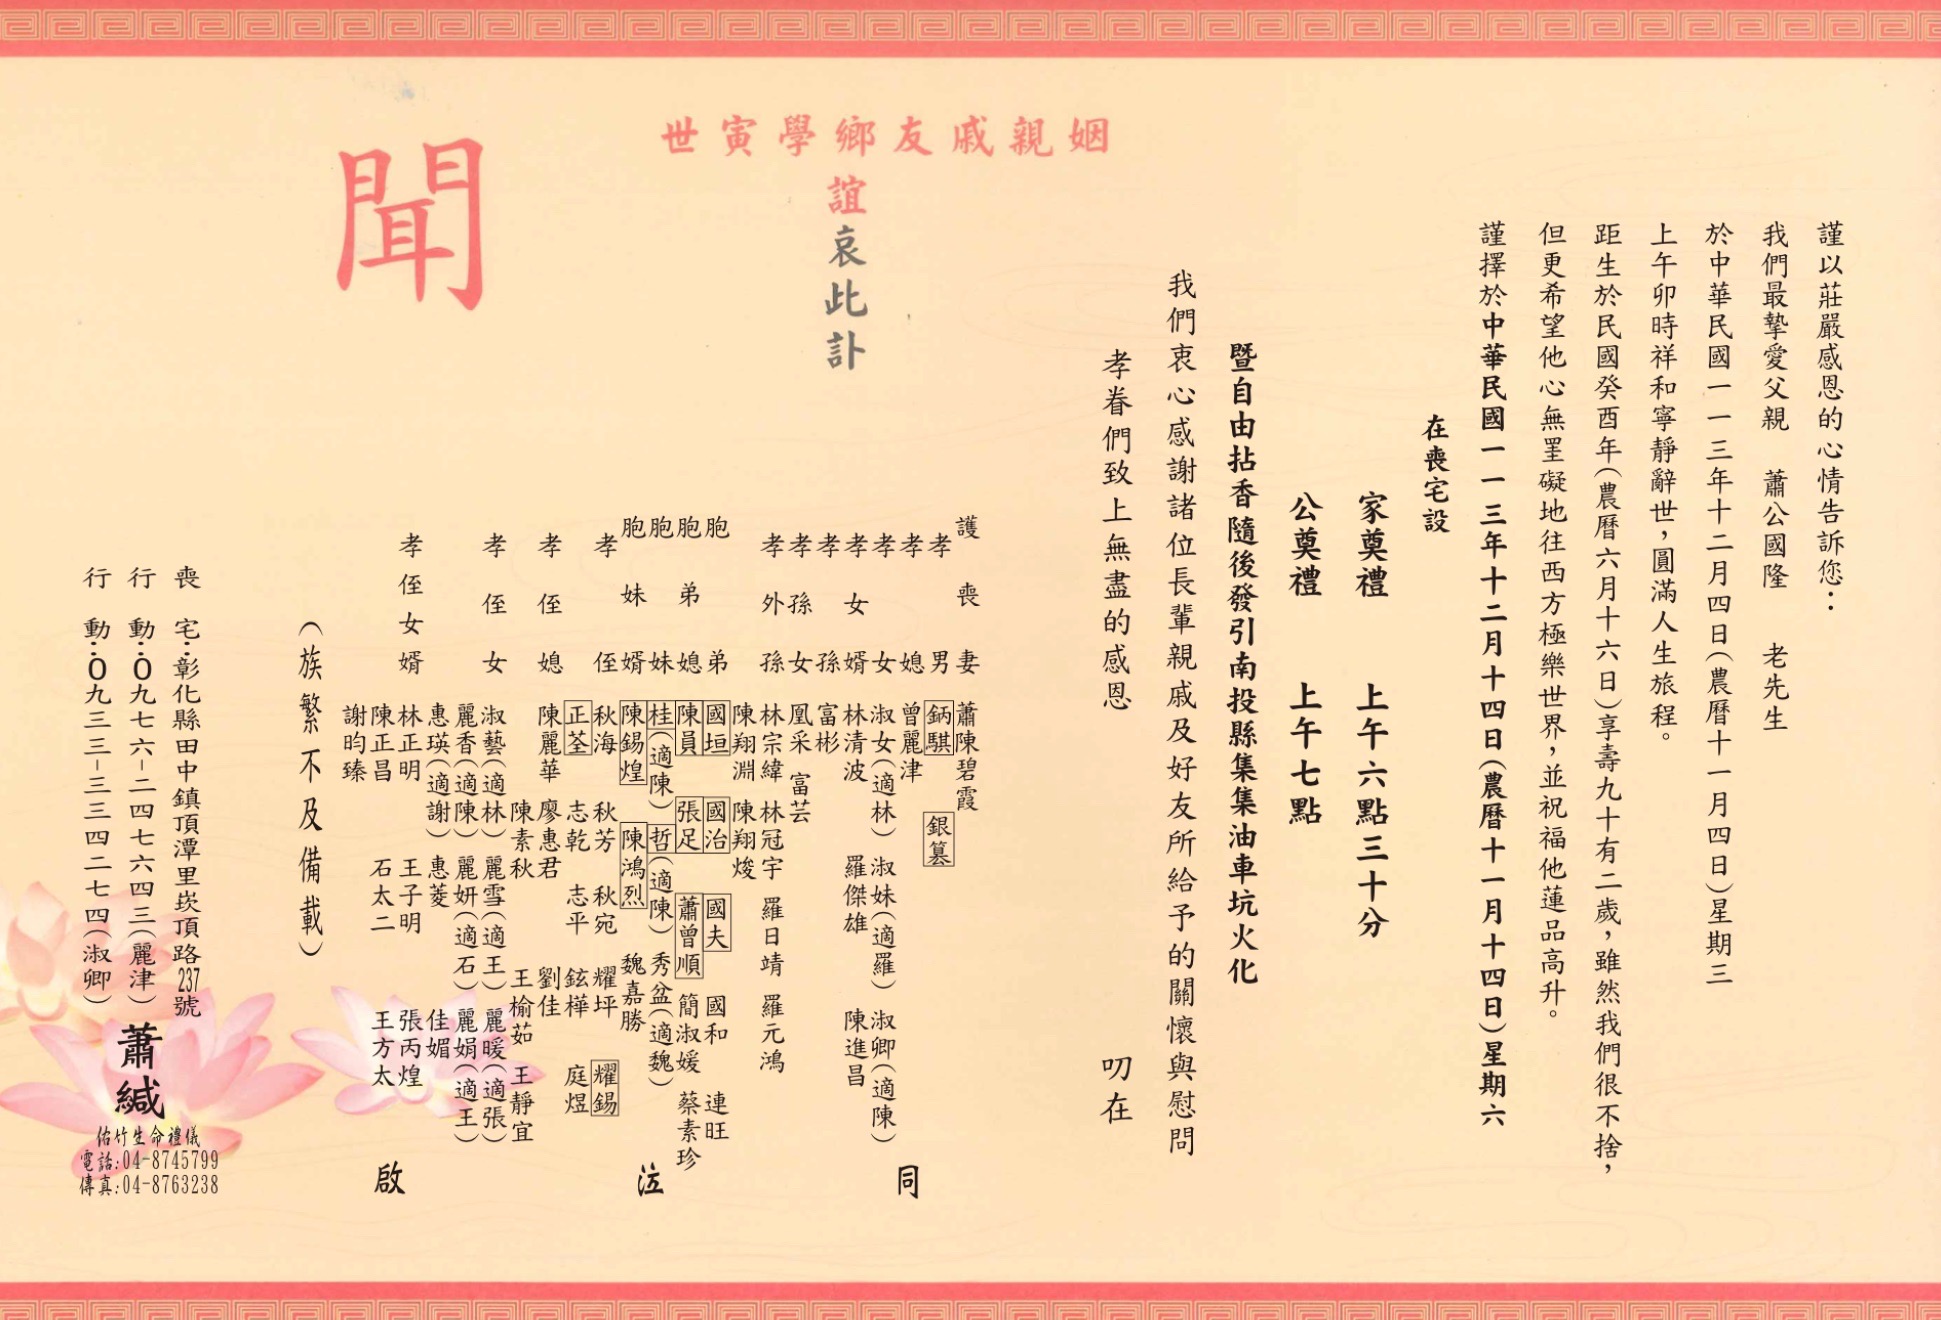 謹以莊嚴感恩的心情告訴您：
我們最摯愛父親 蕭公國隆 老先生
於中華民國一一三年十二月四日(農曆十一月四日)星期三
上午卯時祥和寧靜辭世，圓滿人生旅程。
距生於民國癸酉年(農曆六月十六日)享壽九十有二歲，雖然我們很不捨，
但更希望他心無罣礙地往西方極樂世界，並祝福他蓮品高升。
謹擇於中華民國一一三年十二月十四日(農曆十一月十四日)星期六
在喪宅設
家奠禮 上午六點三十分
公奠禮 上午七點
暨自由拈香隨後發引南投縣集集油車坑火化
我們衷心感謝諸位長輩親戚及好友所給予的關懷與慰問
孝眷們致上無盡的感恩 叨在
姻親戚友鄉學寅世
誼哀此訃
聞
護喪妻 蕭陳碧霞
孝男 鈵騏 銀簒
孝媳 曾麗津
孝女 淑女(適林) 淑妹(適羅) 淑卿(適陳)
孝女婿 林清波 羅傑雄 陳進昌
孝孫 富彬
孝孫女 凰采 富芸
孝外孫 林宗緯 林冠宇 羅日靖 羅元鴻
陳翔淵 陳翔焌
胞弟 國垣 國治 國夫 國和 連旺
胞弟媳 陳員 張足 蕭曾順 簡淑媛 蔡素珍
胞妹 桂(適陳) 哲(適陳) 秀盆(適魏)
胞妹婿 陳錫煌 陳鴻烈 魏嘉勝
孝侄 秋海 秋芳 秋宛 耀坪 耀錫
正荃 志乾 志平 鉉樺 庭煜
孝侄媳 陳麗華 廖惠君 劉佳
陳素秋 王榆茹 王靜宜
孝侄女 淑藝(適林) 麗雪(適王) 麗暖(適張)
麗香(適陳) 麗妍(適石) 麗娟(適王)
惠瑛(適謝) 惠菱 佳媚
孝侄女婿 林正明 王子明 張丙煌
陳正昌 石太二 王方太
謝昀臻
同泣啟
(族繁不及備載)
喪宅：彰化縣田中鎮頂潭里崁頂路237號
行動：0九七六-二四七六四三(麗津)
行動：0九三三-三三四二七四(淑卿)
蕭緘
佑竹生命禮儀
電話:04-8745799
傳真:04-8763238